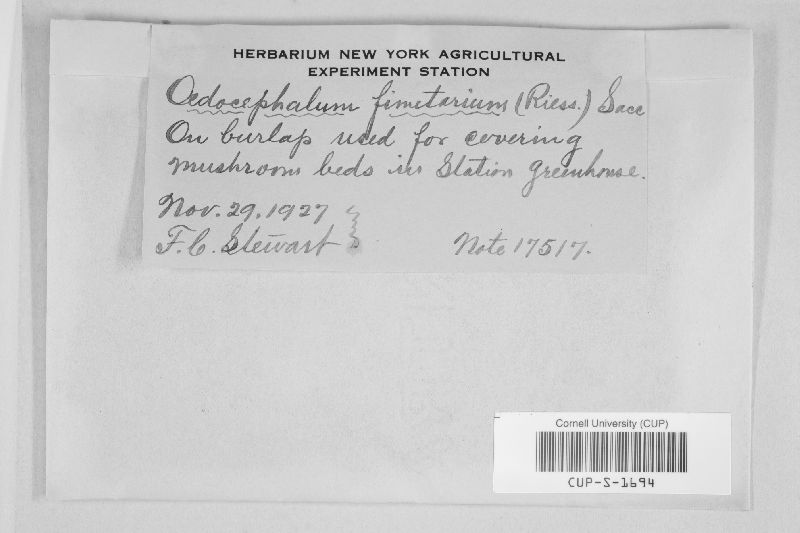 HERBARIUM NEW YORK AGRICULTURAL
EXPERIMENT STATION
Oedocephalum fimetarium (Riess.) Sacc
On burlap used for covering
mushroom beds in Station greenhouse.
Nov. 29, 1927
F.C. Stewart
Note 17517.
Cornell University (CUP)
CUP-S-1694